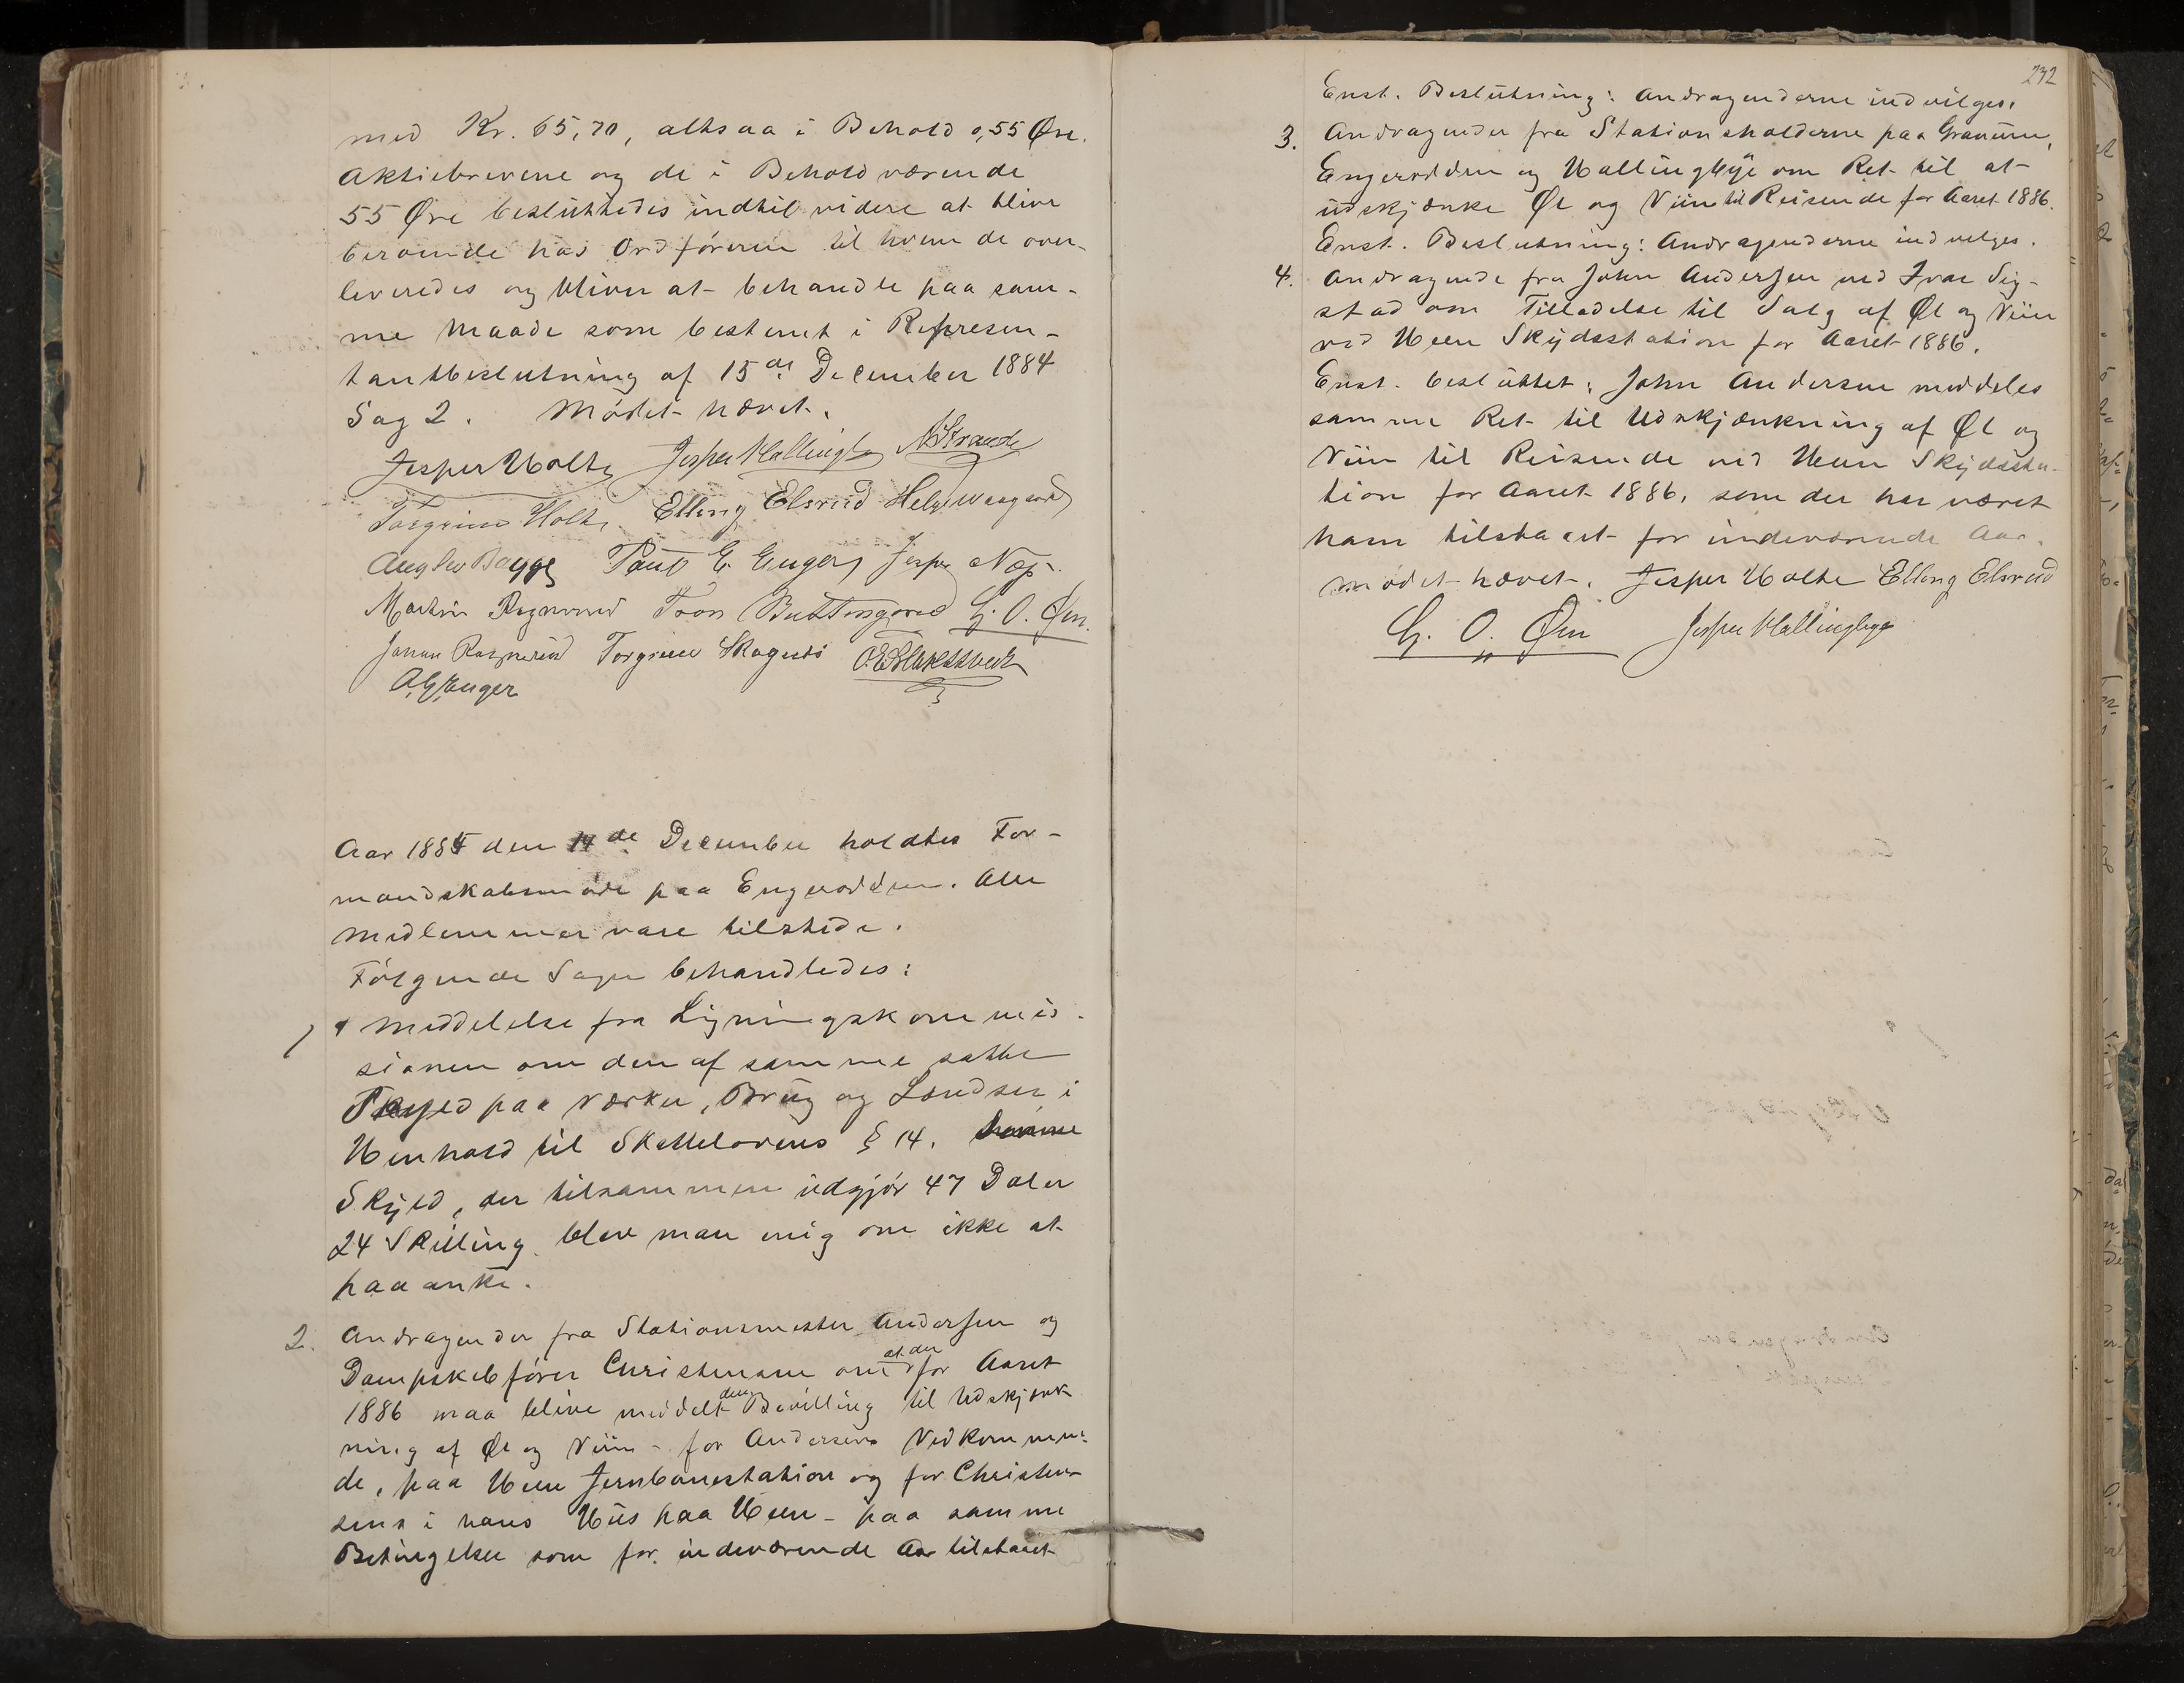 med Kr. 65,70, altsaa i Behold 0,55 Øre.
Aktiebrevene og de i Behold værende
55 Øre besluttedes indtil videre at blive
beroende hos Ordføreren til hvem de over-
leveredes og bliver at behandle paa sam-
me Maade som bestemt i Represen-
tantbeslutning af 15de December 1884
Sag 2. Mødet hævet.
Jesper Holte Jesper Hallingby
Torgrim Holte. Elling Elsrud Helge
Paul E. Enger Jesper
Martin G. O. Øen.
Torgrim
A. G. Enger
Aar 1885 den 14de December holdtes For-
mandskabsmøde paa Engerodden. Alle
Medlemmer vare tilstede.
Følgende Sager behandledes:
1 Meddelelse fra Ligningskommis-
sionen om den af samme satte
Skyld paa Værker, Brug og Lændser i
Henhold til Skattelovens § 14.
Skyld, der tilsammen udgjør 47 Daler
24 Skilling blev man enig om ikke at
paaanke.
2. Andragender fra Stationsmester Andersen og
Dampskibfører Christensen om at der for Aaret
1886 maa blive meddelt dem Bevilling til Udskjænk
ning af Øl og Viin - for Andersens Vedkommen-
de, paa Heen Jernbanestation og for Christen-
sens i hans Huus paa Heen - paa samme
Betingelser som for indeværende Aar tilstaaet
232
Enst. Beslutning: Andragenderne indvilges.
3. Andragender fra Stationsholderne paa Granum,
Engerodden og Hallingbye om Ret til at
udskjænke Øl og Viin til Reisende for Aaret 1886.
Enst. Beslutning: Andragenderne indvilges.
4. Andragende fra John Andersen ved Ivar Sig-
stad om Tilladelse til Salg af Øl og Viin
ved Heen Skydsstation for Aaret 1886.
Enst. besluttet: John Andersen meddeles
samme Ret til Udskjænkning af Øl og
Viin til Reisende ved Heen Skydssta-
tion for Aaret 1886, som der har været
ham tilstaaet for indeværende Aar.
Mødet hævet. Jesper Holte Elling Elsrud
G. O. Øen Jesper Hallingbye